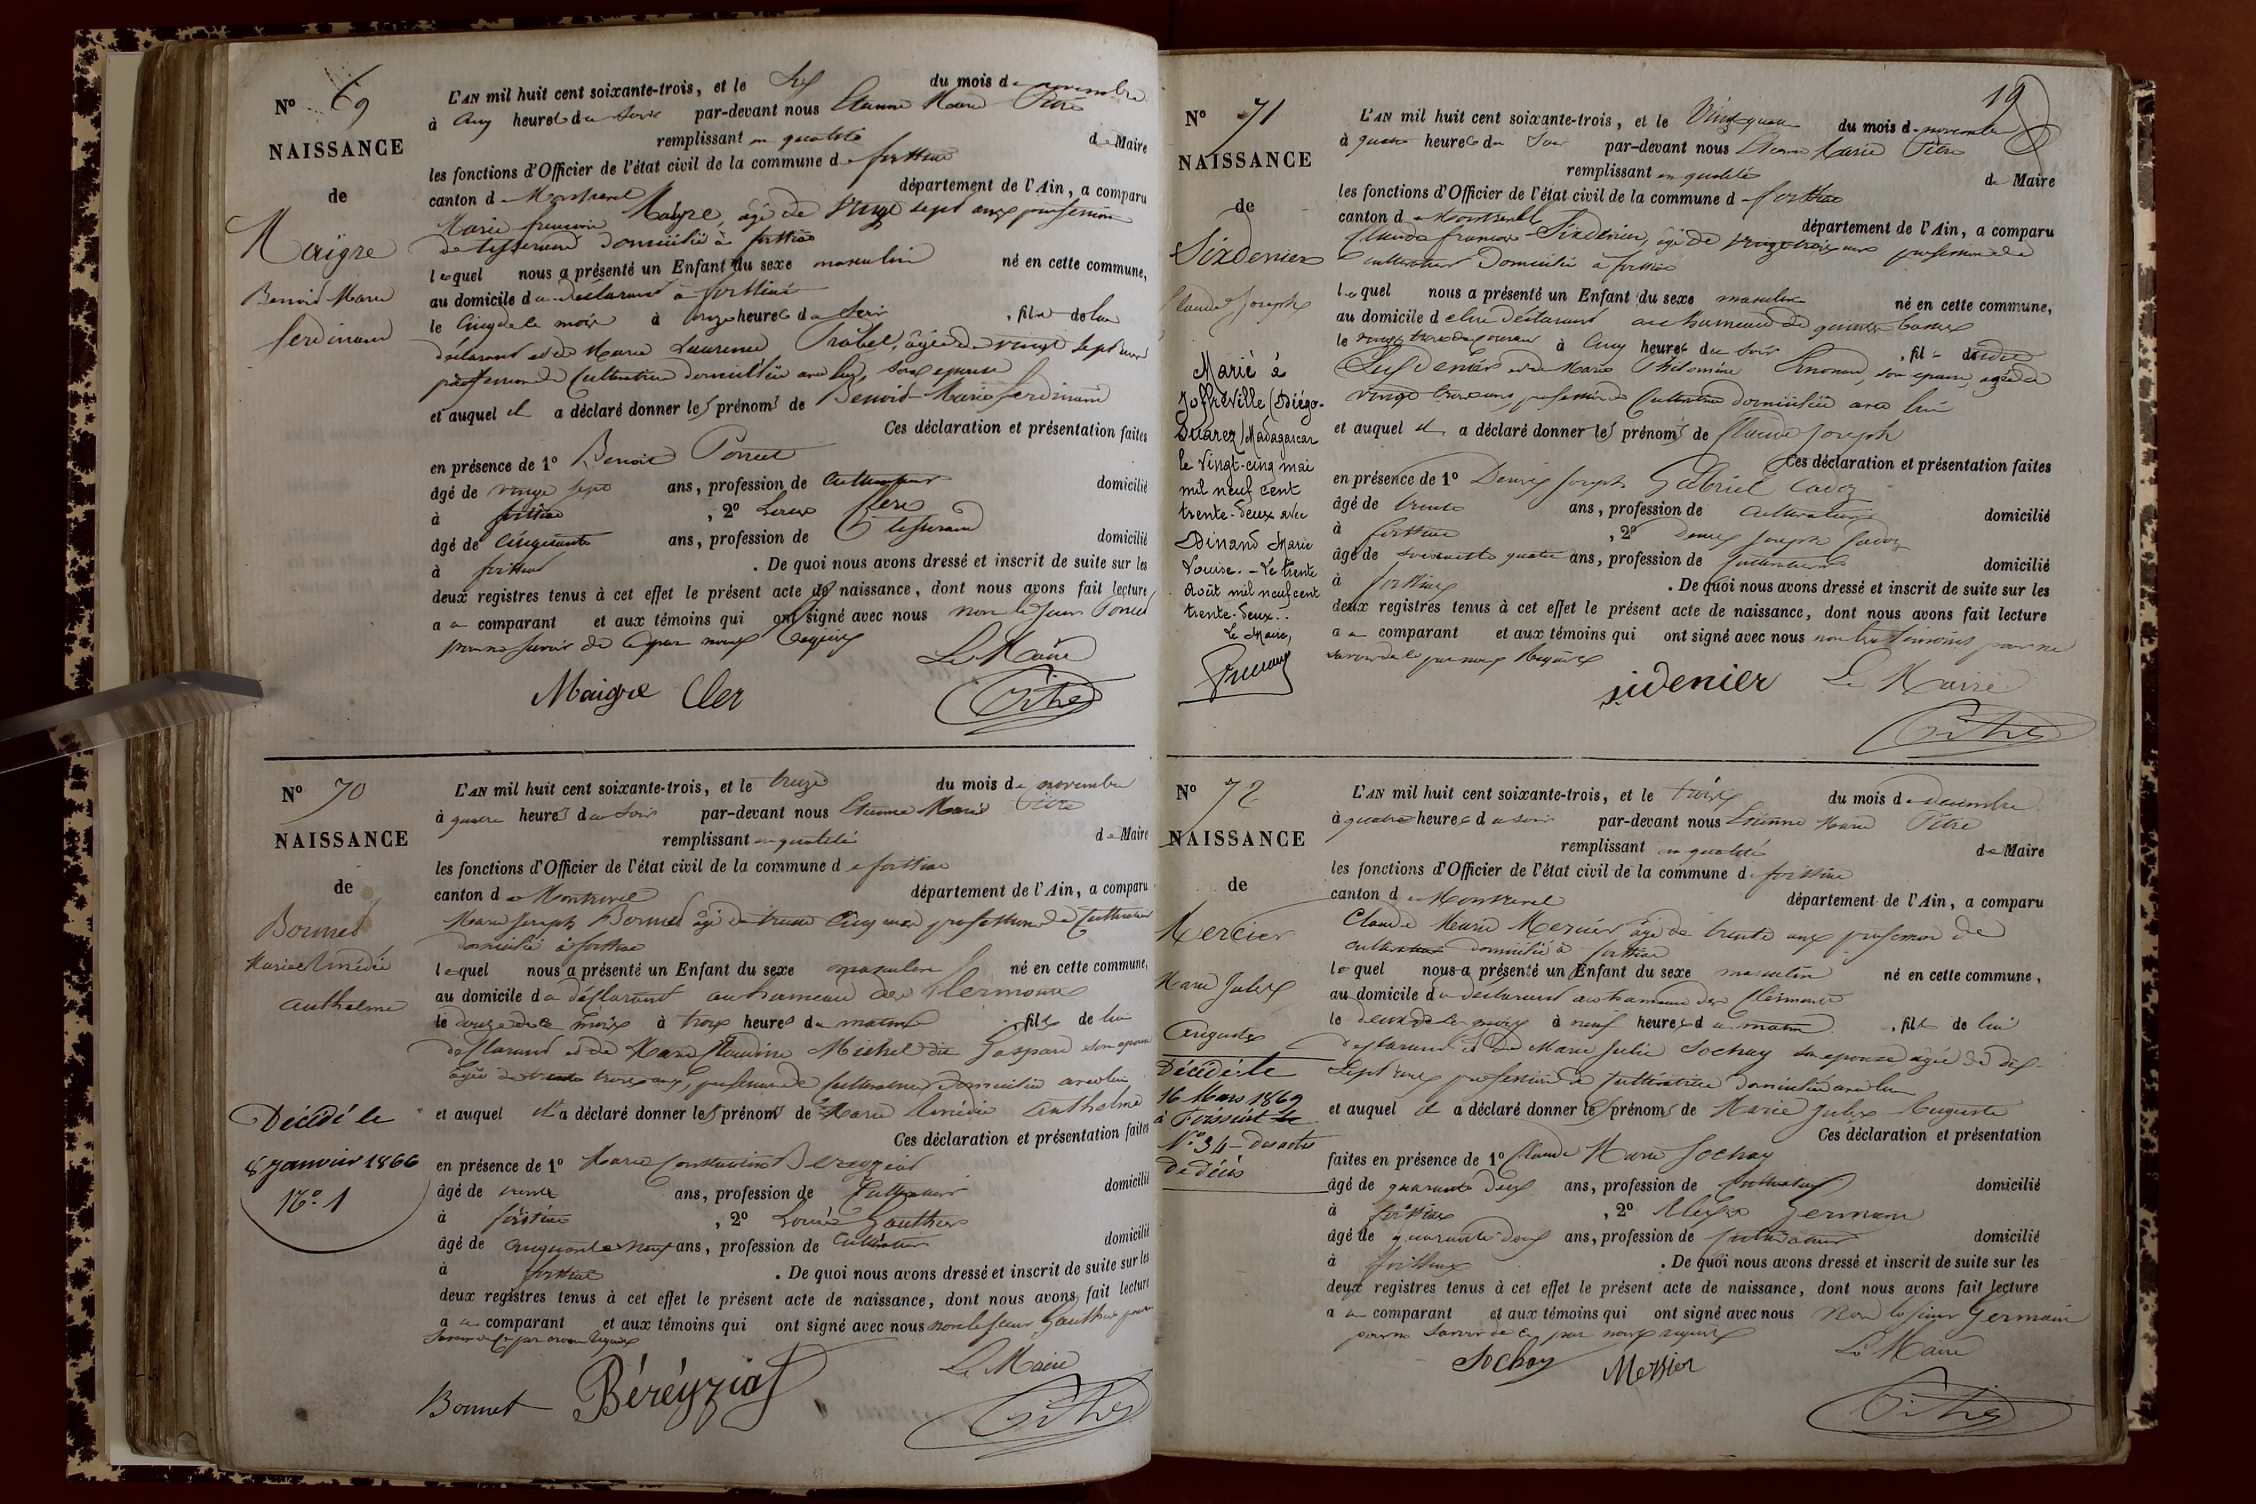 Nº 69
NAISSANCE
de
Maigre
Benoit Marie
ferdinand
L'AN mil huit cent soixante-trois, et le Six du mois de novembre
à cinq heures du soir par-devant nous Etienne Marie Pitre
remplissant en qualité de Maire
les fonctions d'Officier de l'état civil de la commune de
canton de Montrevel département de l'Ain, a comparu
Marie françois Maigre, âgé de vingt sept ans profession
de tisserand domicilié à
lequel nous a présenté un Enfant du sexe masculin né en cette commune,
au domicile du déclarant à
le cinq de ce mois à onze heures du soir, fils de lui
déclarant et de Marie Laurence âgée de vingt sept ans
profession de Cultivatrice domiciliée avec lui, son épouse
et auquel il a déclaré donner les prénoms de Benoit Marie ferdinand
Ces déclaration et présentation faites
en présence de 1º Benoit Poncet
âgé de vingt sept ans, profession de Cultivateur domicilié
à , 2º
âgé de Cinquante ans, profession de tisserand domicilié
à . De quoi nous avons dressé et inscrit de suite sur les
deux registres tenus à cet effet le présent acte de naissance, dont nous avons fait lecture
au comparant et aux témoins qui ont signé avec nous non le sieur Poncet
pour ne savoir de ce par nous requis
Le Maire
Maigre Cler
Pitre
Nº 70
NAISSANCE
de
Bonnet
Marie Amédée
anthelme
Décédé le
8 Janvier 1866
Nº. 1
L'AN mil huit cent soixante-trois, et le treize du mois de novembre
à quatre heures du soir par-devant nous Etienne Marie Pitre
remplissant en qualité de Maire
les fonctions d'Officier de l'état civil de la commune de
canton de Montrevel département de l'Ain, a comparu
Marie Joseph Bonnet âgé de trente cinq ans profession de Cultivateur
domicilié à
lequel nous a présenté un Enfant du sexe masculin né en cette commune,
au domicile du déclarant au hameau des
le douze de ce mois à trois heures du matin, fils de lui
déclarant et de Marie Claudine Michel dit Gaspard son épouse
âgée de trente trois ans, profession de cultivatrice domiciliée avec lui
et auquel il a déclaré donner les prénoms de Marie Amédée Anthelme
Ces déclaration et présentation faites
en présence de 1º Marie Constantin Béréyziat
âgé de trente ans, profession de Cultivateur domicilié
à , 2º Louis Gauthier
âgé de cinquante neuf ans, profession de Cultivateur domicilié
à . De quoi nous avons dressé et inscrit de suite sur les
deux registres tenus à cet effet le présent acte de naissance, dont nous avons fait lecture
au comparant et aux témoins qui ont signé avec nous non le sieur Gauthier pour ne
savoir de ce par nous requis
Le Maire
Bonnet Béréyziat
Pitre
19
Nº 71
NAISSANCE
de
Sixdenier
Claude Joseph
Marié à
Joffreville (Diégo-
Suarez) Madagascar
le vingt-cinq mai
mil neuf cent
trente-deux avec
Dinand Marie
Louise. – Le trente
Août mil neuf cent
trente-deux..
Le Maire,
L'AN mil huit cent soixante-trois, et le Vingt quatre du mois de novembre
à quatre heures du soir par-devant nous Etienne Marie Pitre
remplissant en qualité de Maire
les fonctions d'Officier de l'état civil de la commune de
canton de Montrevel département de l'Ain, a comparu
Claude françois Sixdenier, âgé de vingt trois ans profession de
Cultivateur domicilié à
lequel nous a présenté un Enfant du sexe masculin né en cette commune,
au domicile du déclarant au hameau de
le vingt trois du courant à Cinq heures du soir, fils dudit
Sixdenier et de Marie Philomène son épouse, âgée de
vingt trois ans profession de Cultivatrice domiciliée avec lui
et auquel il a déclaré donner les prénoms de Claude Joseph
Ces déclaration et présentation faites
en présence de 1º Denis Joseph Gabriel Cadoz
âgé de trente ans, profession de Cultivateur domicilié
à , 2º Denis Joseph Cadoz
âgé de soixante quatre ans, profession de Cultivateur domicilié
à . De quoi nous avons dressé et inscrit de suite sur les
deux registres tenus à cet effet le présent acte de naissance, dont nous avons fait lecture
au comparant et aux témoins qui ont signé avec nous non les témoins pour ne
savoir de ce par nous Requis
sidenier Le Maire
Pitre
Nº 72
NAISSANCE
de
Mercier
Marie Jules
Auguste
Décédé le
16 Mars 1869
à Foissiat
Nº. 34 – des actes
De décès
L'AN mil huit cent soixante-trois, et le trois du mois de décembre
à quatre heures du soir par-devant nous Etienne Marie Pitre
remplissant en qualité de Maire
les fonctions d'Officier de l'état civil de la commune de
canton de Montrevel département de l'Ain, a comparu
Claude Marie Mercier âgé de trente ans profession de
cultivateur domicilié à
lequel nous a présenté un Enfant du sexe masculin né en cette commune,
au domicile du déclarant au hameau des
le deux de ce mois à neuf heures du matin, fils de lui
déclarant et de Marie Julie Sochay son épouse âgée de dix
sept ans profession de Cultivatrice domiciliée avec lui
et auquel il a déclaré donner les prénoms de Marie Jules Auguste
Ces déclaration et présentation
faites en présence de 1º Claude Marie Sochay
âgé de quarante deux ans, profession de Cultivateur domicilié
à , 2º Alexis Germain
âgé de quarante deux ans, profession de Cultivateur domicilié
à . De quoi nous avons dressé et inscrit de suite sur les
deux registres tenus à cet effet le présent acte de naissance, dont nous avons fait lecture
au comparant et aux témoins qui ont signé avec nous Non le sieur Germain
pour ne savoir de ce par nous requis
Le Maire
Sochay Mersier
Pitre